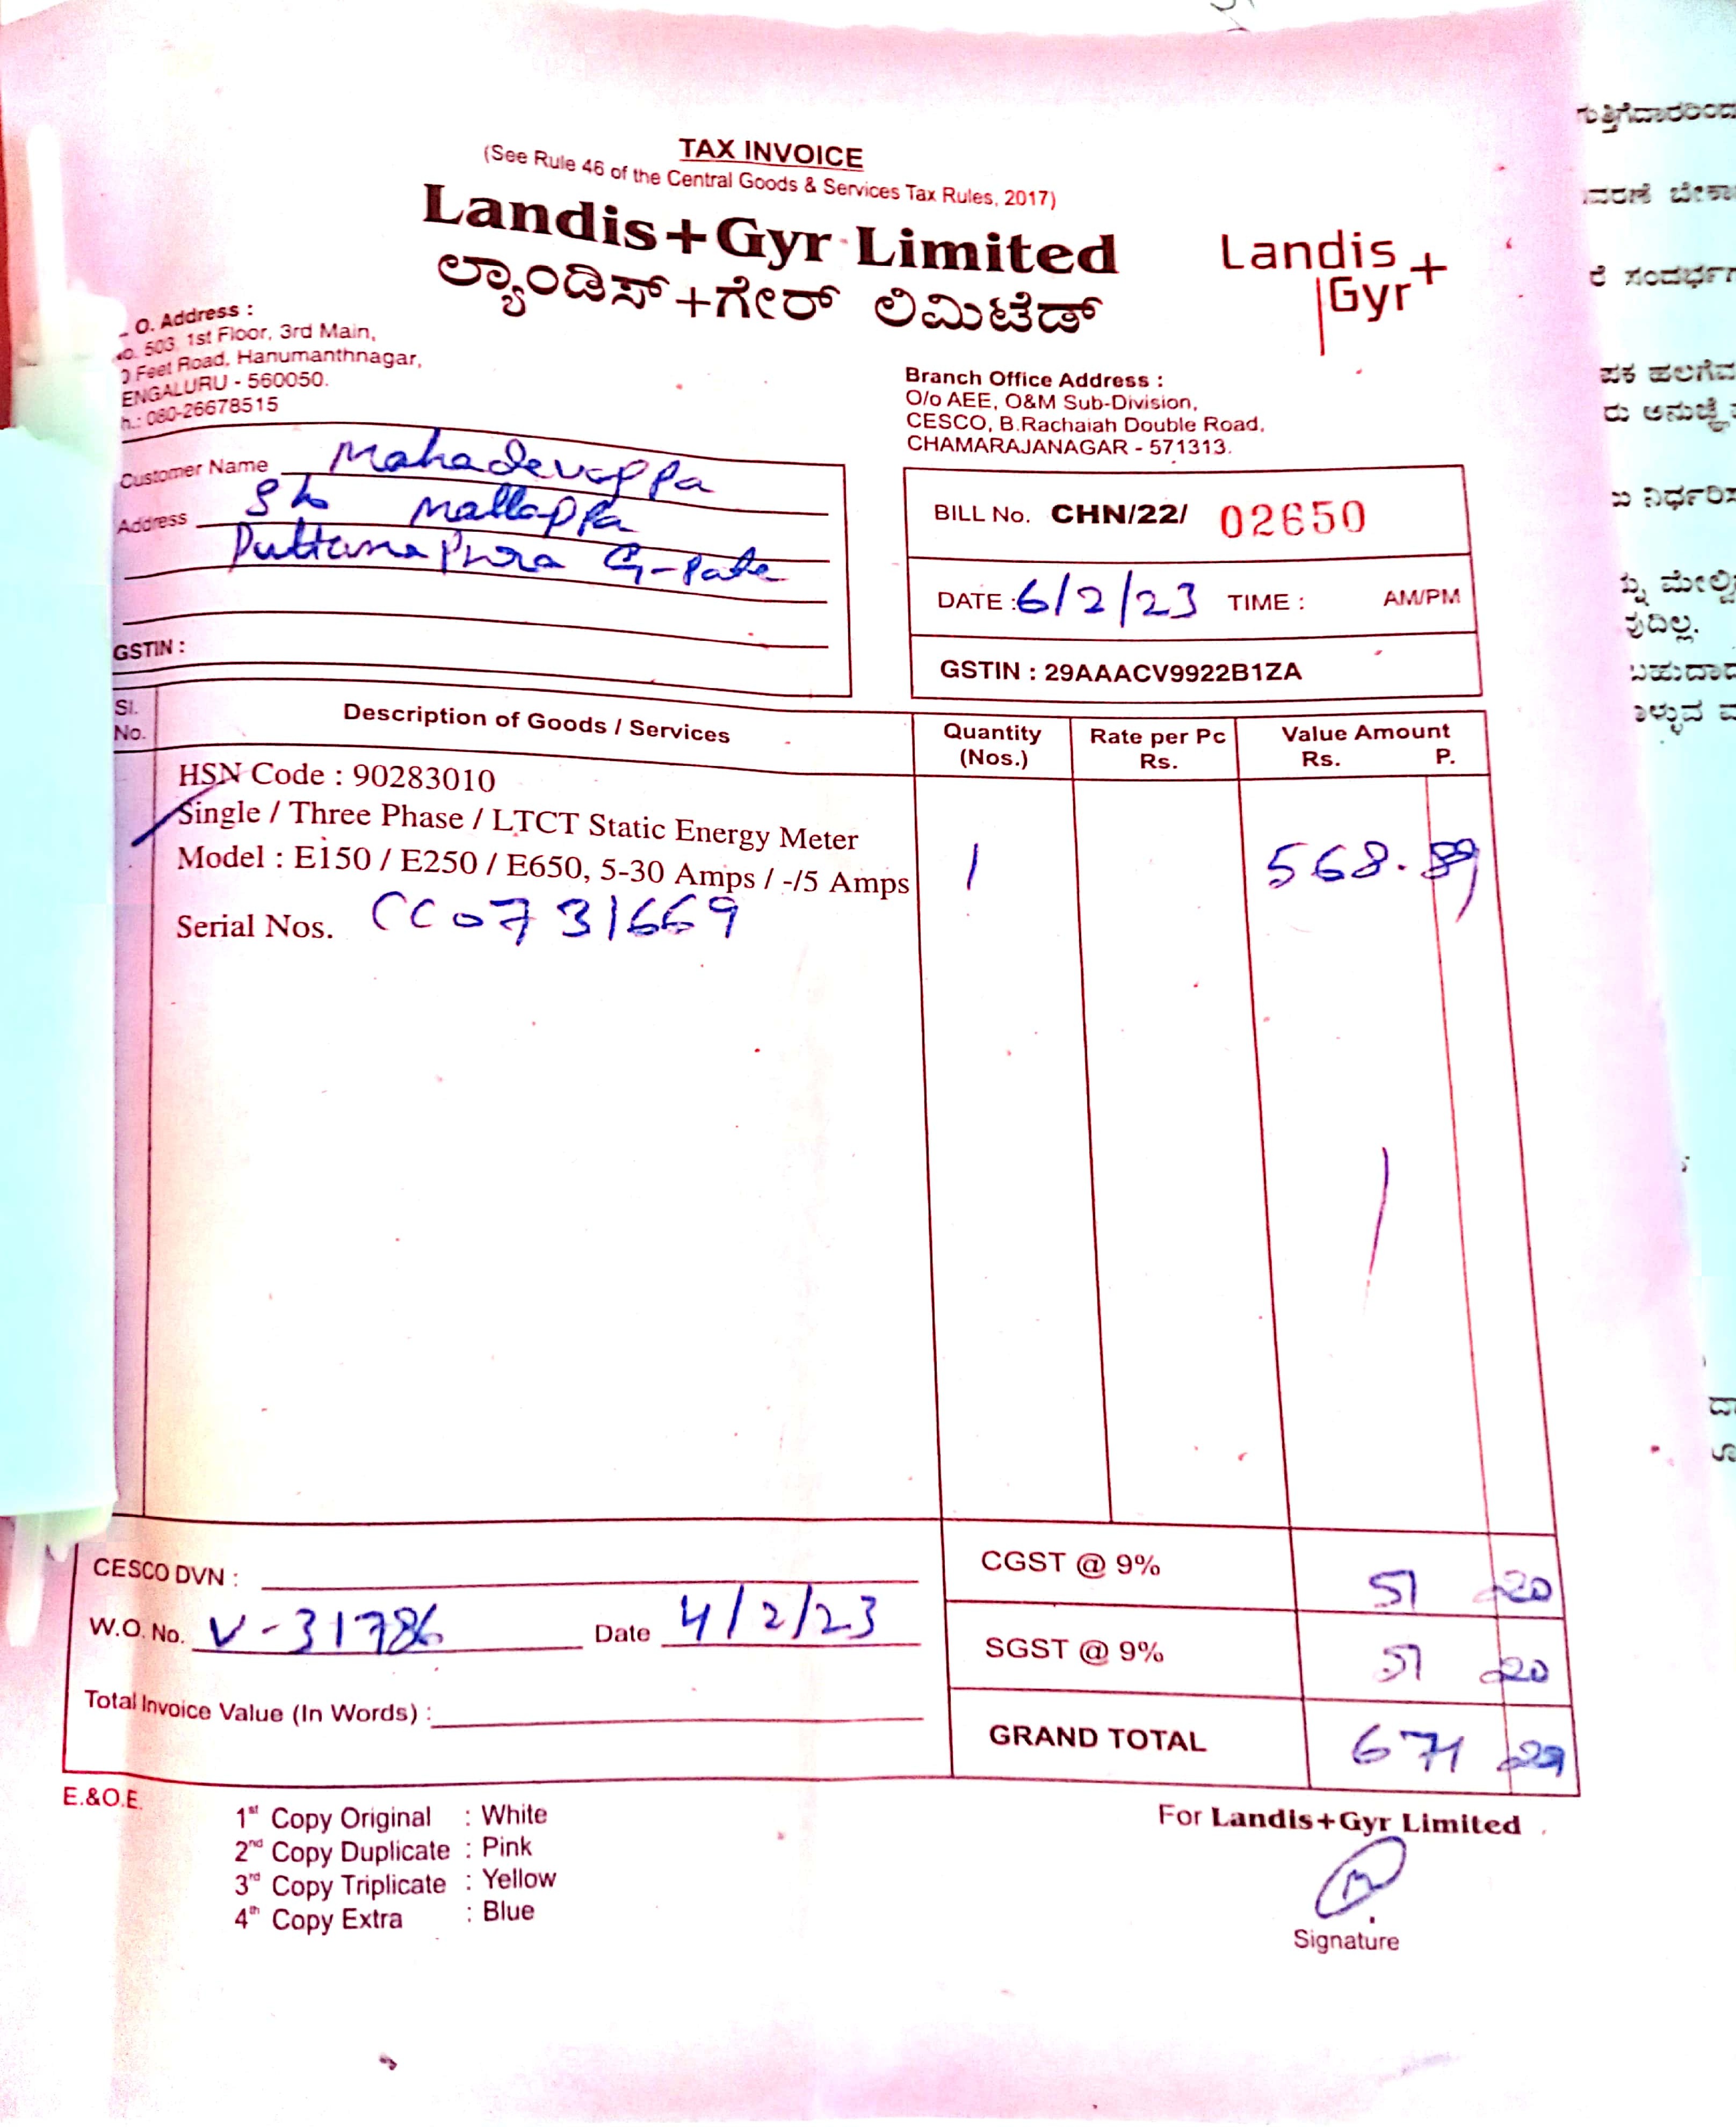 TAX INVOICE
(See Rule 46 of the Central Goods & Services Tax Rules, 2017)
Landis+Gyr Limited
ಲ್ಯಾಂಡಿಸ್+ಗೇರ್ ಲಿಮಿಟೆಡ್
Landis
Gyr+
O. Address :
503, 1st Floor, 3rd Main,
Feet Road, Hanumanthnagar,
ENGALURU - 560050.
h.: 080-26678515
Branch Office Address :
O/o AEE, O&M Sub-Division,
CESCO, B.Rachaiah Double Road,
CHAMARAJANAGAR - 571313.
Customer Name Mahadevappa
Address Mallappa
G-Pate
GSTIN :
BILL No. CHN/22/ 02650
DATE : 6/2/23 TIME : AM/PM
GSTIN : 29AAACV9922B1ZA
Sl. No. Description of Goods / Services Quantity (Nos.) Rate per Pc Rs. Value Amount Rs. P.
HSN Code : 90283010
Single / Three Phase / LTCT Static Energy Meter
Model : E150 / E250 / E650, 5-30 Amps / -/5 Amps 1 568.89
Serial Nos. CC0731669
CESCO DVN :
W.O. No. V-31786 Date 4/2/23
Total Invoice Value (In Words) :
CGST @ 9% 51 20
SGST @ 9% 51 20
GRAND TOTAL 671 29
E.&O.E.
1st Copy Original : White
2nd Copy Duplicate : Pink
3rd Copy Triplicate : Yellow
4th Copy Extra : Blue
For Landis+Gyr Limited
Signature
ಗುತ್ತಿಗೆದಾರರಿಂದ
ರೆ ಸಂದರ್ಭ